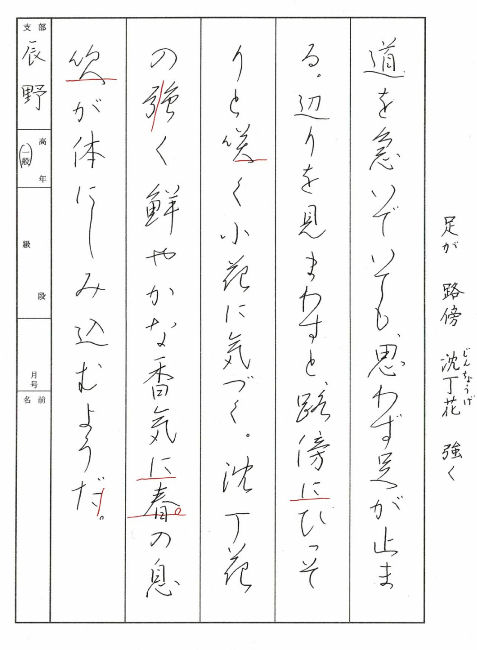 足が 路傍 沈丁花 強く
じんちょうげ
道を急いでいても、思わず足が止ま
る。辺りを見まわすと、路傍にひっそ
りと咲く小花に気づく。沈丁花
の強く鮮やかな香気に春の息
吹が体にしみ込むようだ。
支部
辰野
高 年
一般
級 段
月号
名前